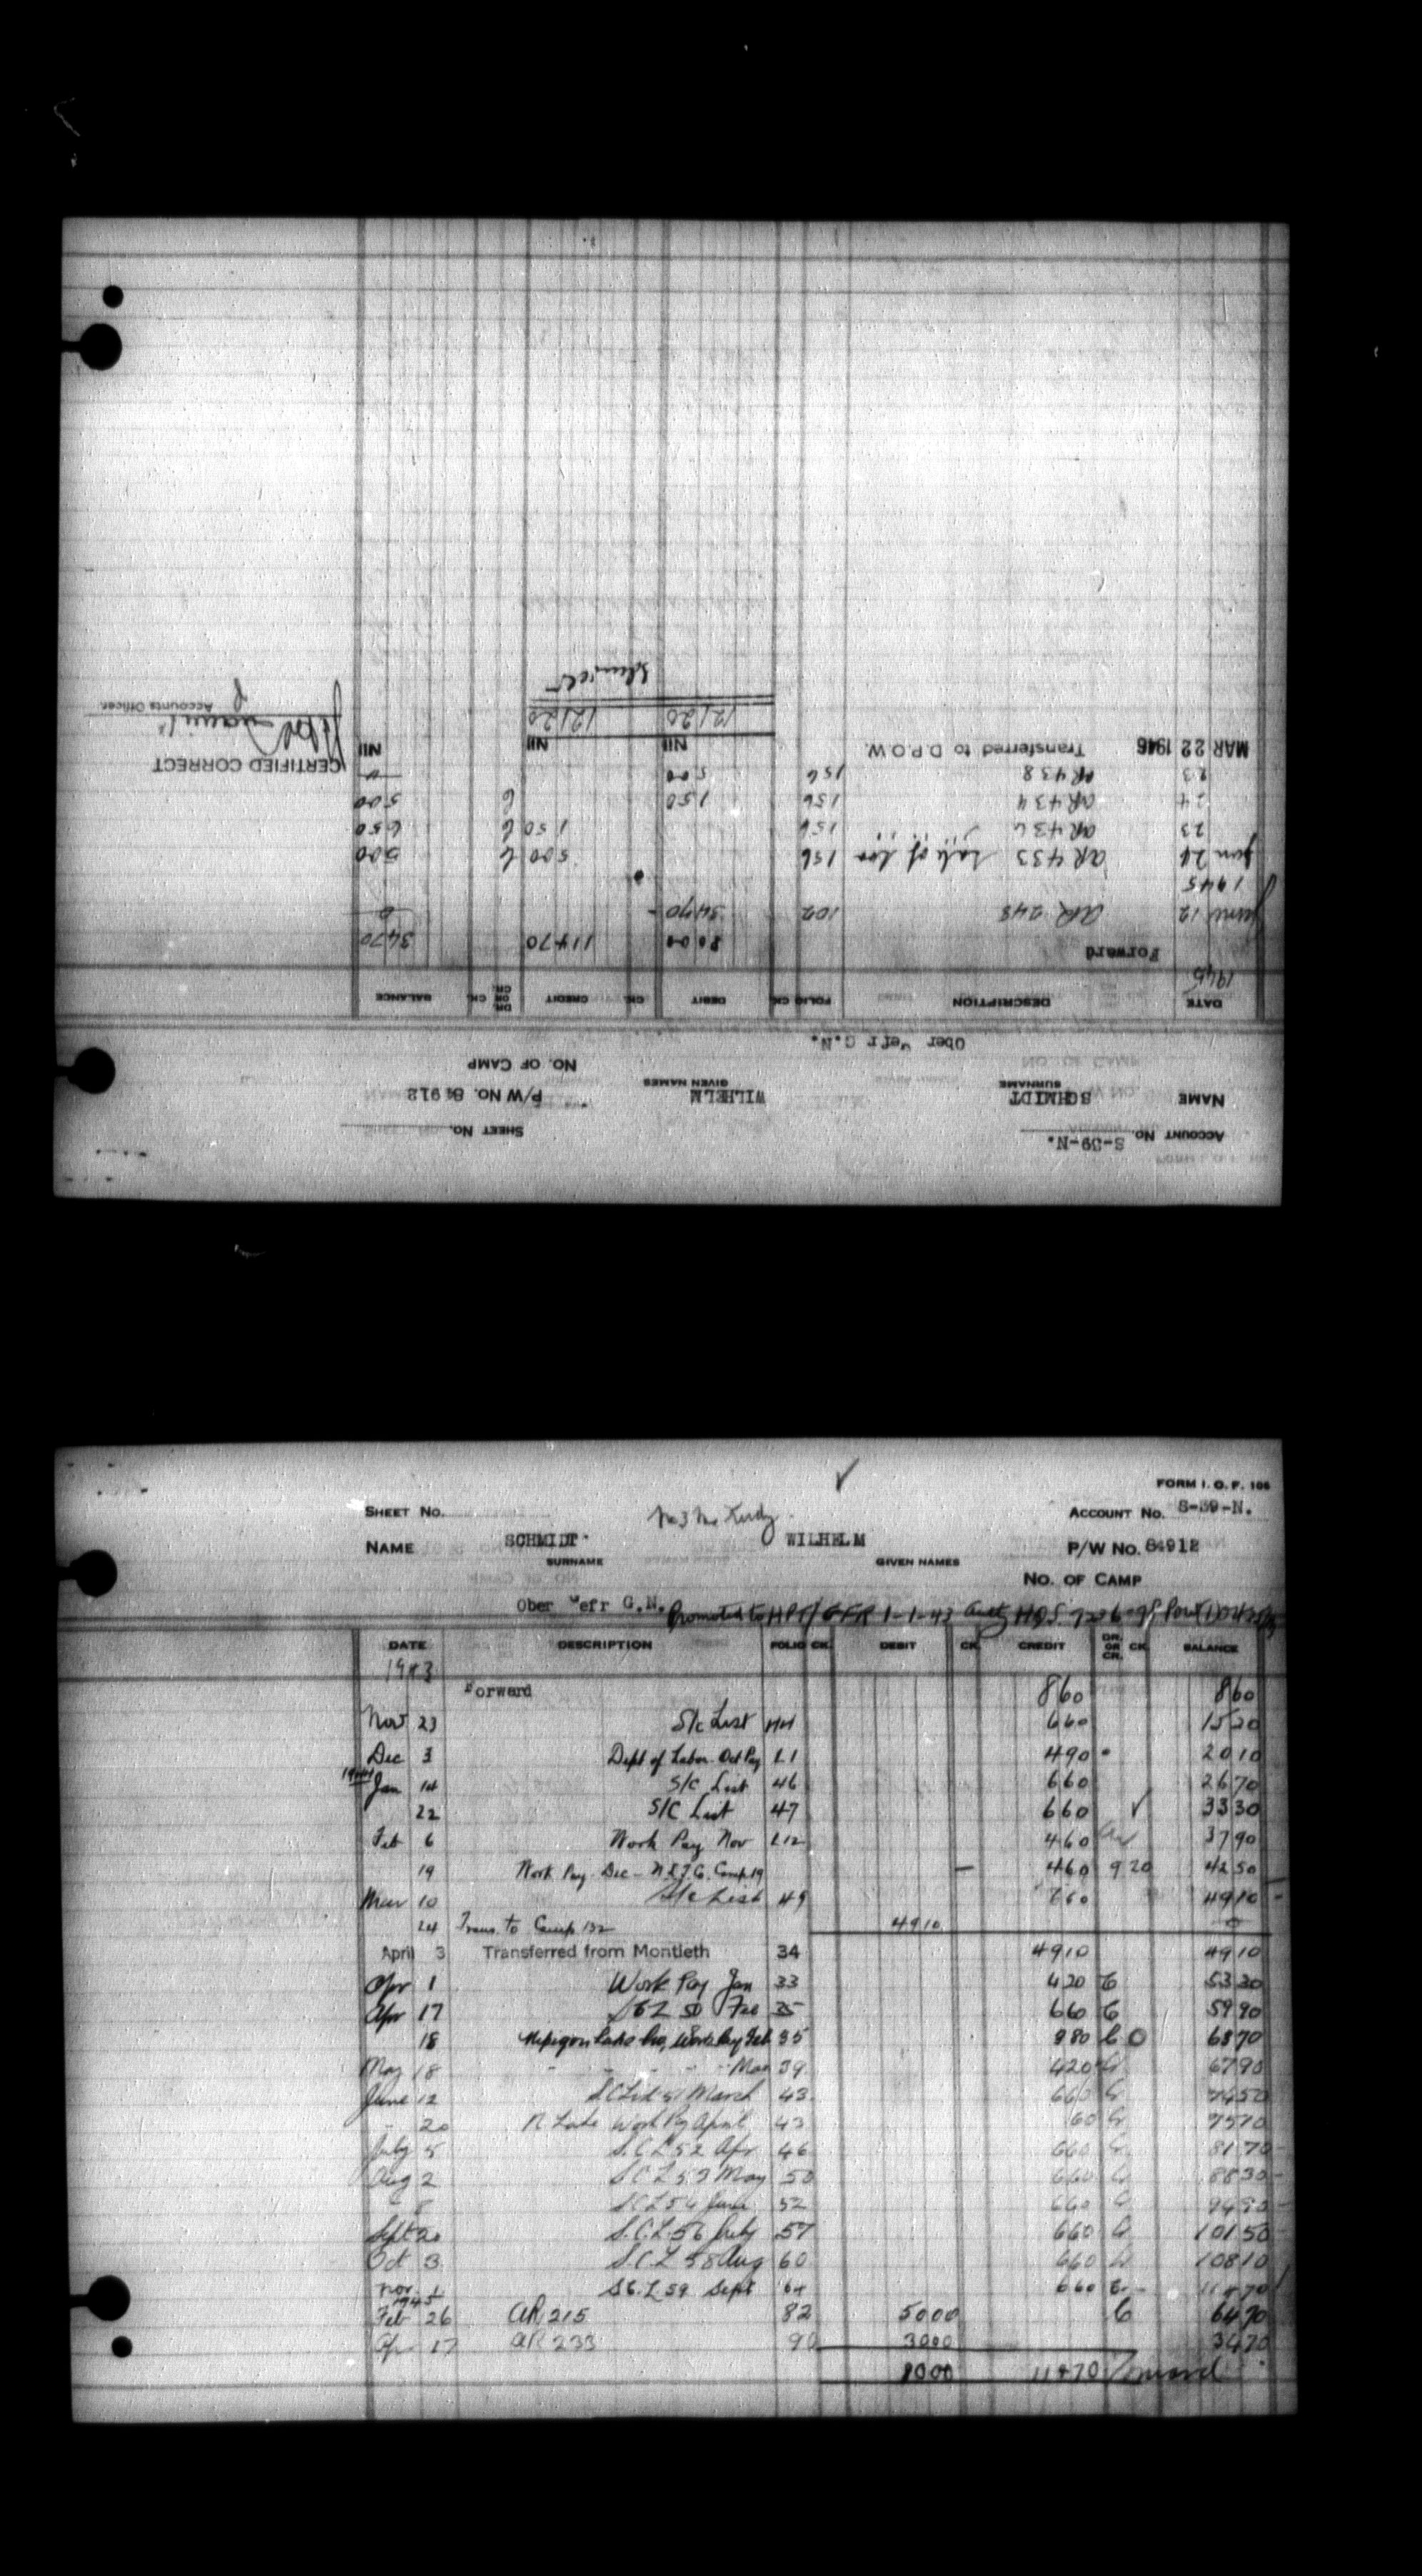 ACCOUNT No. S-39-N. SHEET No.
NAME SCHMIDT WILHELM P/W No. 84912
SURNAME GIVEN NAMES
NO. OF CAMP
Ober Gefr G.N.
DATE DESCRIPTION FOLIO CK. DEBIT CK. CREDIT DR. OR CR. CK. BALANCE
1945
Forward 8000 11470 3470
June 12 AR 248 102 3470 0
1945
Jan 24 AR 433 Sale of 156 500 C 500
23 AR 436 156 150 C 650
24 AR 434 156 150 C 500
23 AR 438 156 500 0
MAR 22 1946 Transferred to D.P.O.W. Nil Nil Nil
121 20 121 20
CERTIFIED CORRECT
Accounts Officer.
Schmidt
FORM I. O. F. 106
SHEET No. ACCOUNT No. S-39-N.
NAME SCHMIDT WILHELM P/W No. 84912
SURNAME GIVEN NAMES
NO. OF CAMP
Ober Gefr G.N. Promoted to 1-1-43
DATE DESCRIPTION FOLIO CK. DEBIT CK. CREDIT DR. OR CR. CK. BALANCE
1943
Forward 860 860
Nov 23 S/c List 44 660 1520
Dec 3 Dept of Labor Oct Pay L1 490 2010
1944 Jan 14 S/C List 46 660 2670
22 S/C List 47 660 3330
Feb 6 Work Pay Nov L12 460 3790
19 Work Pay Dec - Camp 19 460 920 4250
Mar 10 S/c List 49 660 4910
24 Trans. to Camp 132 4910 0
April 3 Transferred from Montieth 34 4910 4910
Apr 1 Work Pay Jan 33 420 C 5330
Apr 17 SCL 50 Feb 35 660 C 5990
18 Nipigon Lake Co, Work Pay Feb 35 880 C 6870
May 18 " " " " Mar 39 420 C 6790
June 12 S C List 51 March 43 660 C 7450
20 N Lake Work Pay April 43 60 C 7510
July 5 S.C.L 52 Apr 46 660 C 8170
Aug 2 S.C.L 53 May 50 660 C 8830
8 S.C.L 54 June 52 660 C 9490
Sept 20 S.C.L. 56 July 57 660 C 10150
Oct 3 S.C.L 58 Aug 60 660 C 10810
Nov 1 S.C.L 59 Sept 64 660 C 11470
1945
Feb 26 AR 215 82 5000 C 6470
Apr 17 AR 233 90 3000 3470
8000 11470 Forward